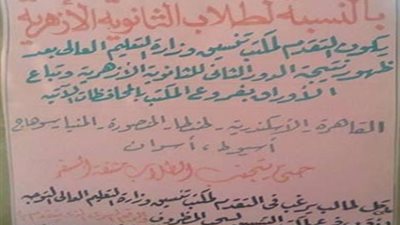 بالنسبة لطلاب الثانوية الأزهرية
يكون التقدم لمكتب تنسيق وزارة التعليم العالى بعد
ظهور نتيجة الدور الثانى للثانوية الأزهرية وتباع
الأوراق بفروع المكتب بالمحافظات الآتية
القاهرة - الاسكندرية - طنطا - المنصورة - المنيا - سوهاج
أسيوط ، أسوان
حتى يتجنب الطلاب مشقة السفر
كل طالب يرغب فى التقدم لمكتب تنسيق وزارة التعليم العالى التوجه